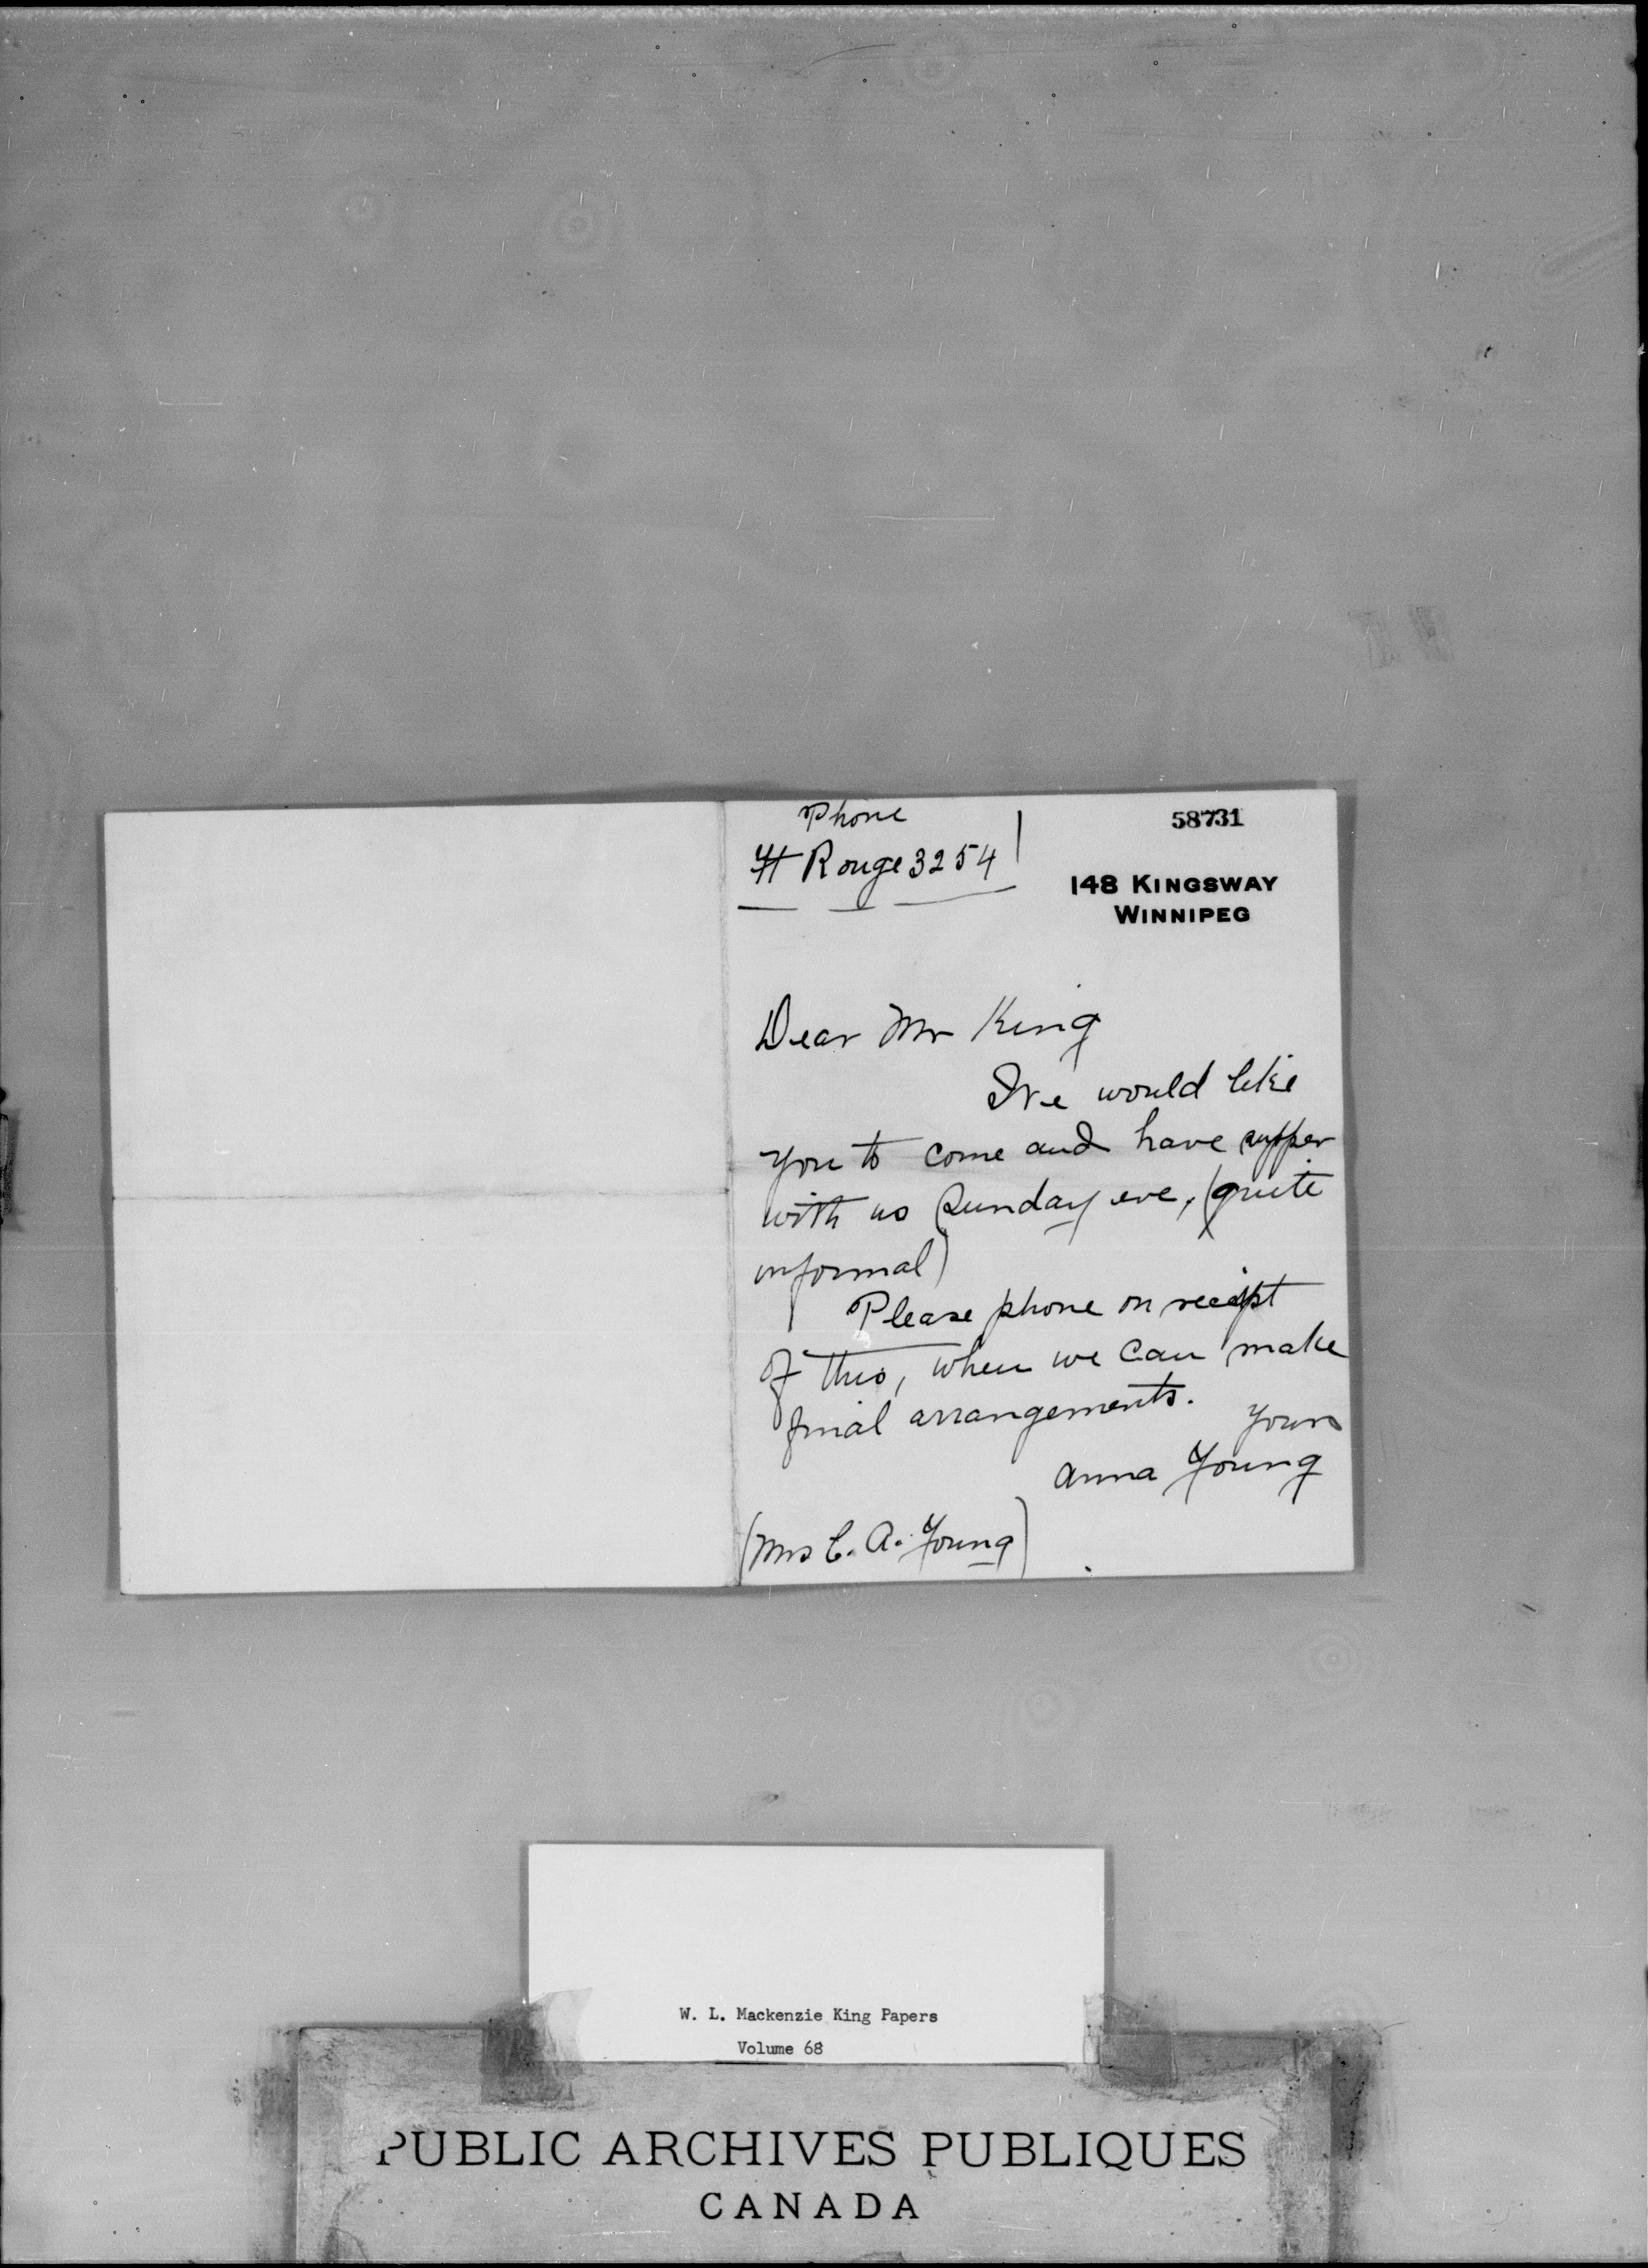 Phone
Ft Rouge 3254
58731
148 KINGSWAY
WINNIPEG
Dear Mr King
We would like
you to come and have supper
with us Sunday eve, (quite
informal)
Please phone on receipt
of this, when we can make
final arrangements.
Yours
Anna Young
(Mrs C. A. Young)
W. L. Mackenzie King Papers
Volume 68
PUBLIC ARCHIVES PUBLIQUES
CANADA